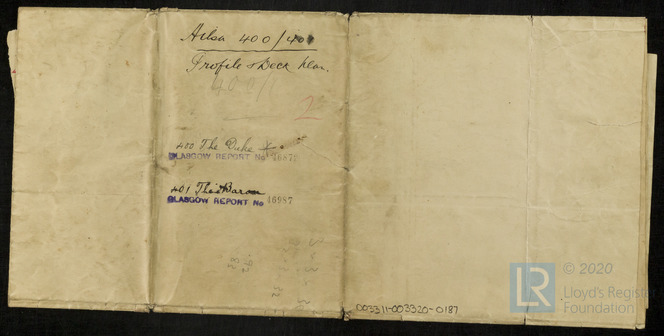 Ailsa 400/401
Profile & Deck Plan.
400
2
400 The Duke
GLASGOW REPORT No 16872
401 The Baron
GLASGOW REPORT No 16987
003311-003320-0187
LR © 2020
Lloyd's Register
Foundation